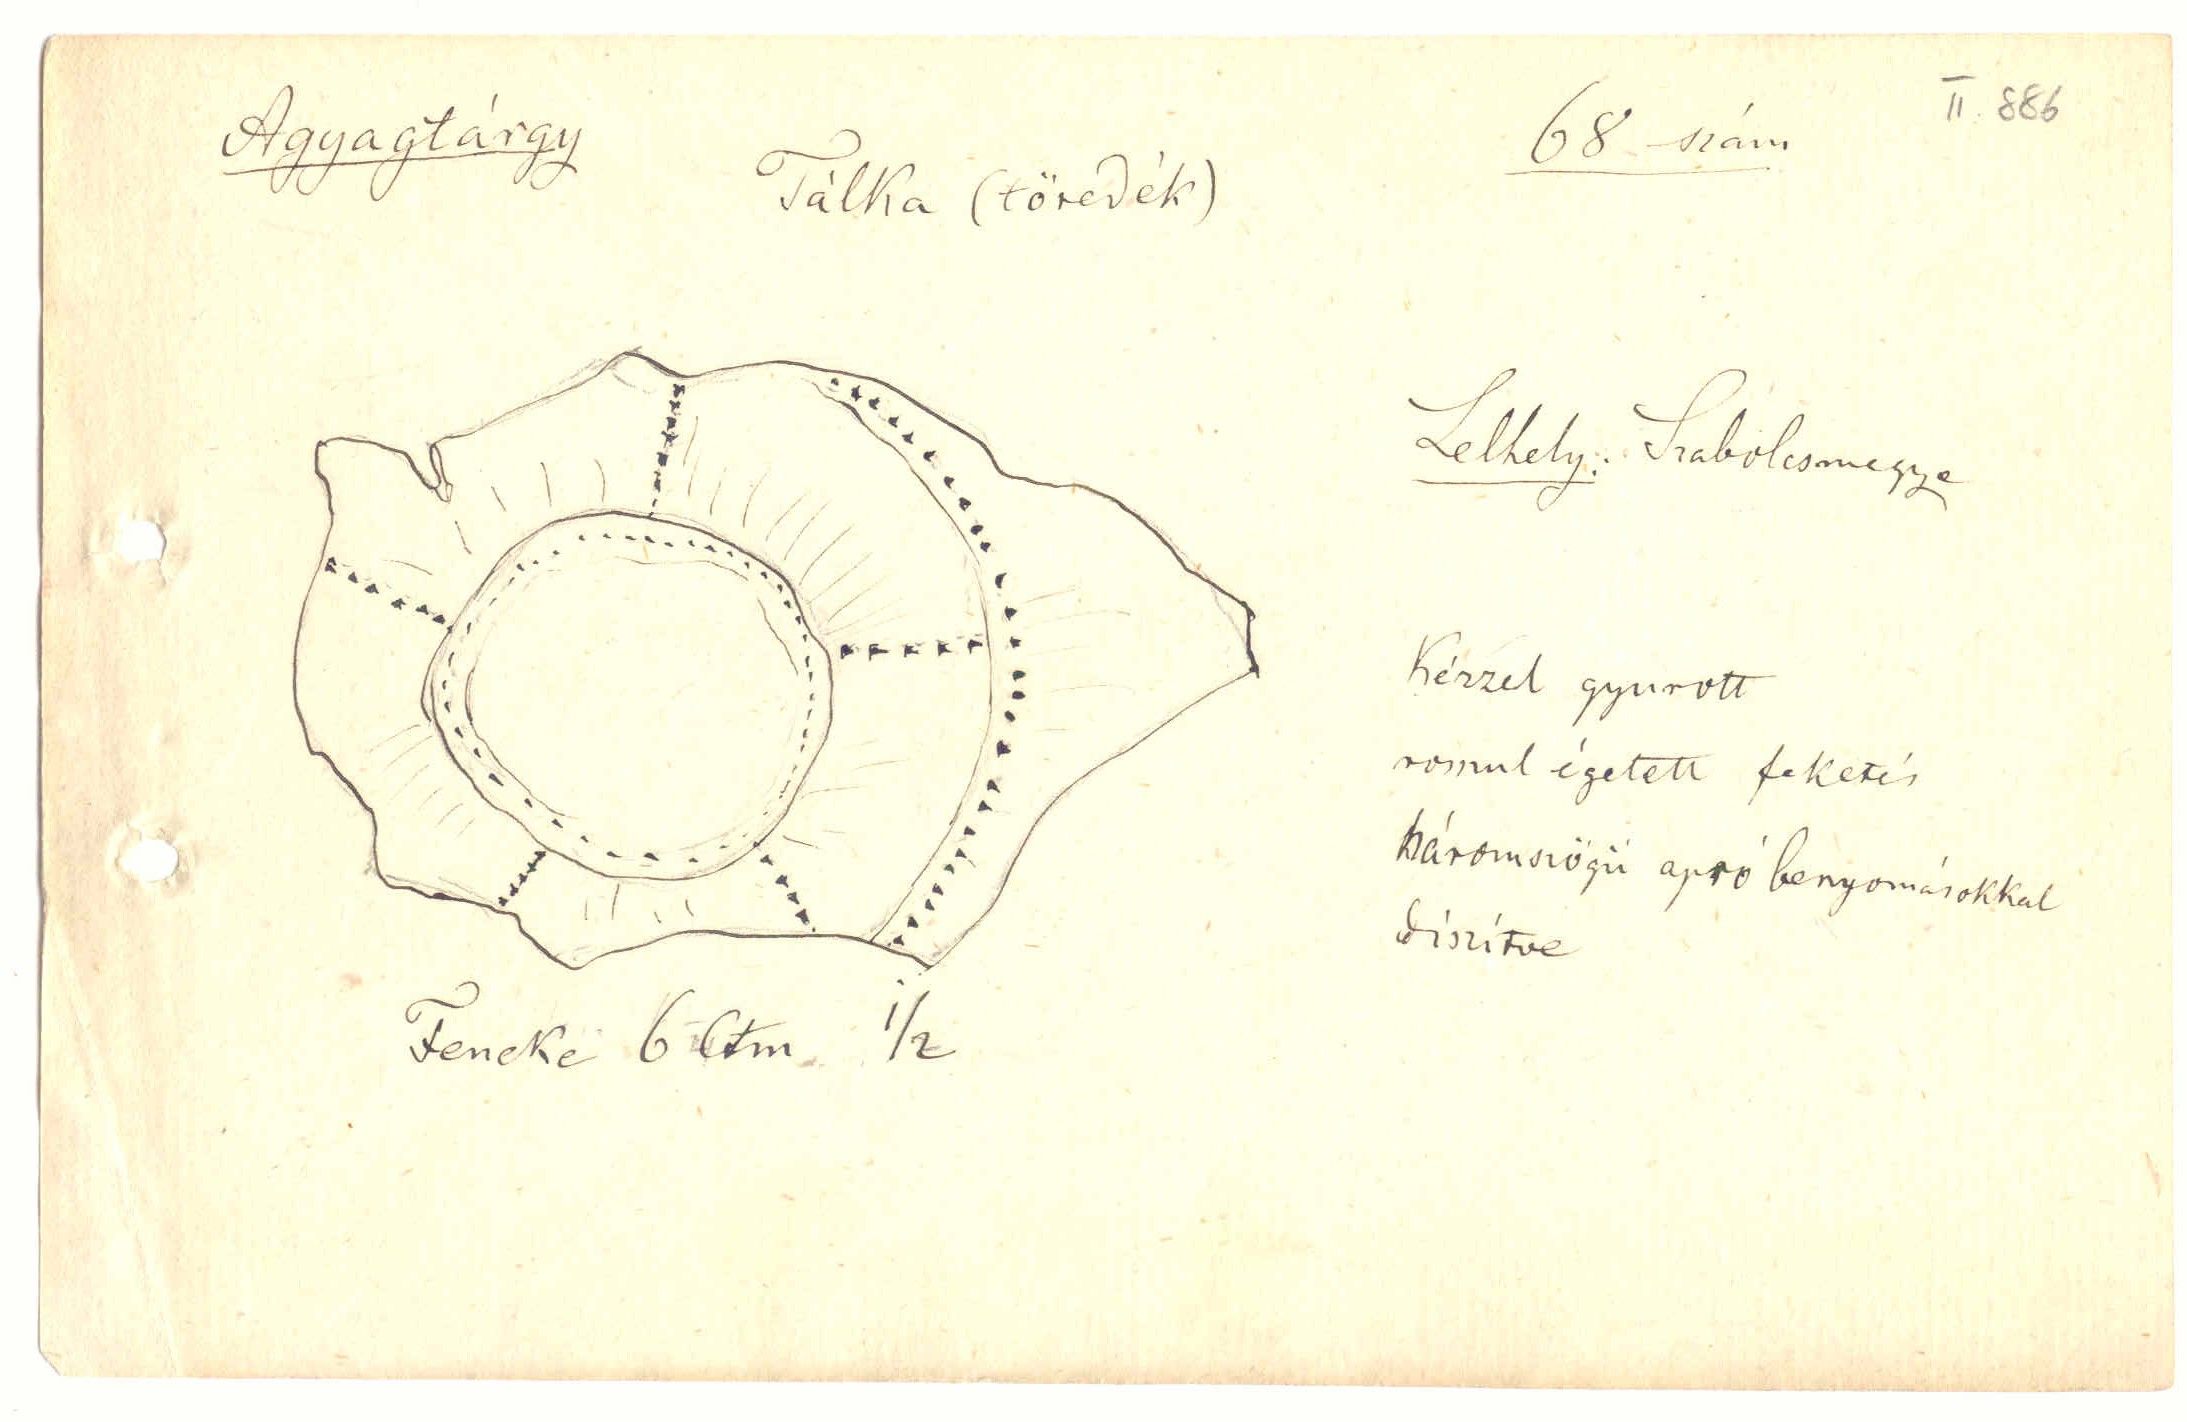 Agyagtárgy
Tálka (töredék)
68 szám
II. 886
Lelhely: Szabolcsmegye
Kézzel gyurott
rosszul égetett feketés
háromszögü apró benyomásokkal
díszítve
Feneke 6 Ctm 1/2